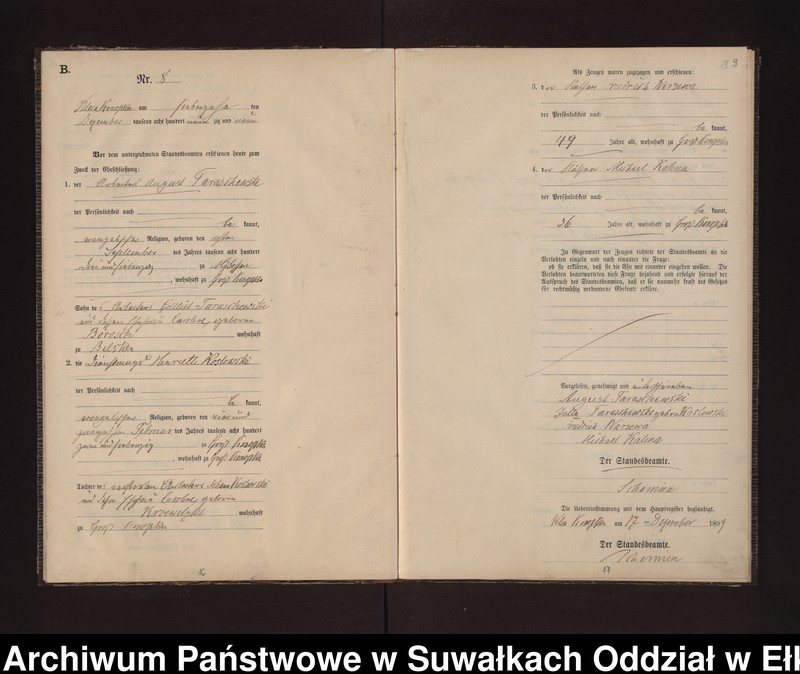 B.
Nr. 8
Klein Konopken am siebenzehn ten
Dezember tausend acht hundert neun zig und neun
Vor dem unterzeichneten Standesbeamten erschienen heute zum
Zweck der Eheschließung:
1. der August Taraschewski
der Persönlichkeit nach
be kannt,
evangelischer Religion, geboren den
September des Jahres tausend acht hundert
drei und siebenzig zu
, wohnhaft zu Groß Konopken
Sohn des Taraschewski
und dessen Ehefrau Caroline, geborene
wohnhaft
zu
2. die Dienstmagd Henriette Koslowski
der Persönlichkeit nach
be kannt,
evangelischer Religion, geboren den neun und
zwanzigsten Februar des Jahres tausend acht hundert
zwei und siebenzig zu Groß Konopken
, wohnhaft zu Groß Konopken
Tochter des verstorbenen Koslowski
und dessen Ehefrau Caroline, geborene
wohnhaft
zu Groß Konopken
16
9
Als Zeugen waren zugezogen und erschienen:
3. der Käthner Friedrich Warzewa
der Persönlichkeit nach
be kannt,
49 Jahre alt, wohnhaft zu Groß Konopken
4. der Käthner Michael Kalina
der Persönlichkeit nach
be kannt,
36 Jahre alt, wohnhaft zu Groß Konopken
In Gegenwart der Zeugen richtete der Standesbeamte an die
Verlobten einzeln und nach einander die Frage:
ob sie erklären, daß sie die Ehe mit einander eingehen wollen. Die
Verlobten beantworteten diese Frage bejahend und erfolgte hierauf der
Ausspruch des Standesbeamten, daß er sie nunmehr kraft des Gesetzes
für rechtmäßig verbundene Eheleute erkläre.
Vorgelesen, genehmigt und unterschrieben
August Taraschewski
Taraschewski geboren Koslowski
Friedrich Warzewa
Michael Kalina
Der Standesbeamte.
Die Uebereinstimmung mit dem Hauptregister beglaubigt.
Klein Konopken am 17 ten Dezember 1899
Der Standesbeamte.
17
Archiwum Państwowe w Suwałkach Oddział w Ełk